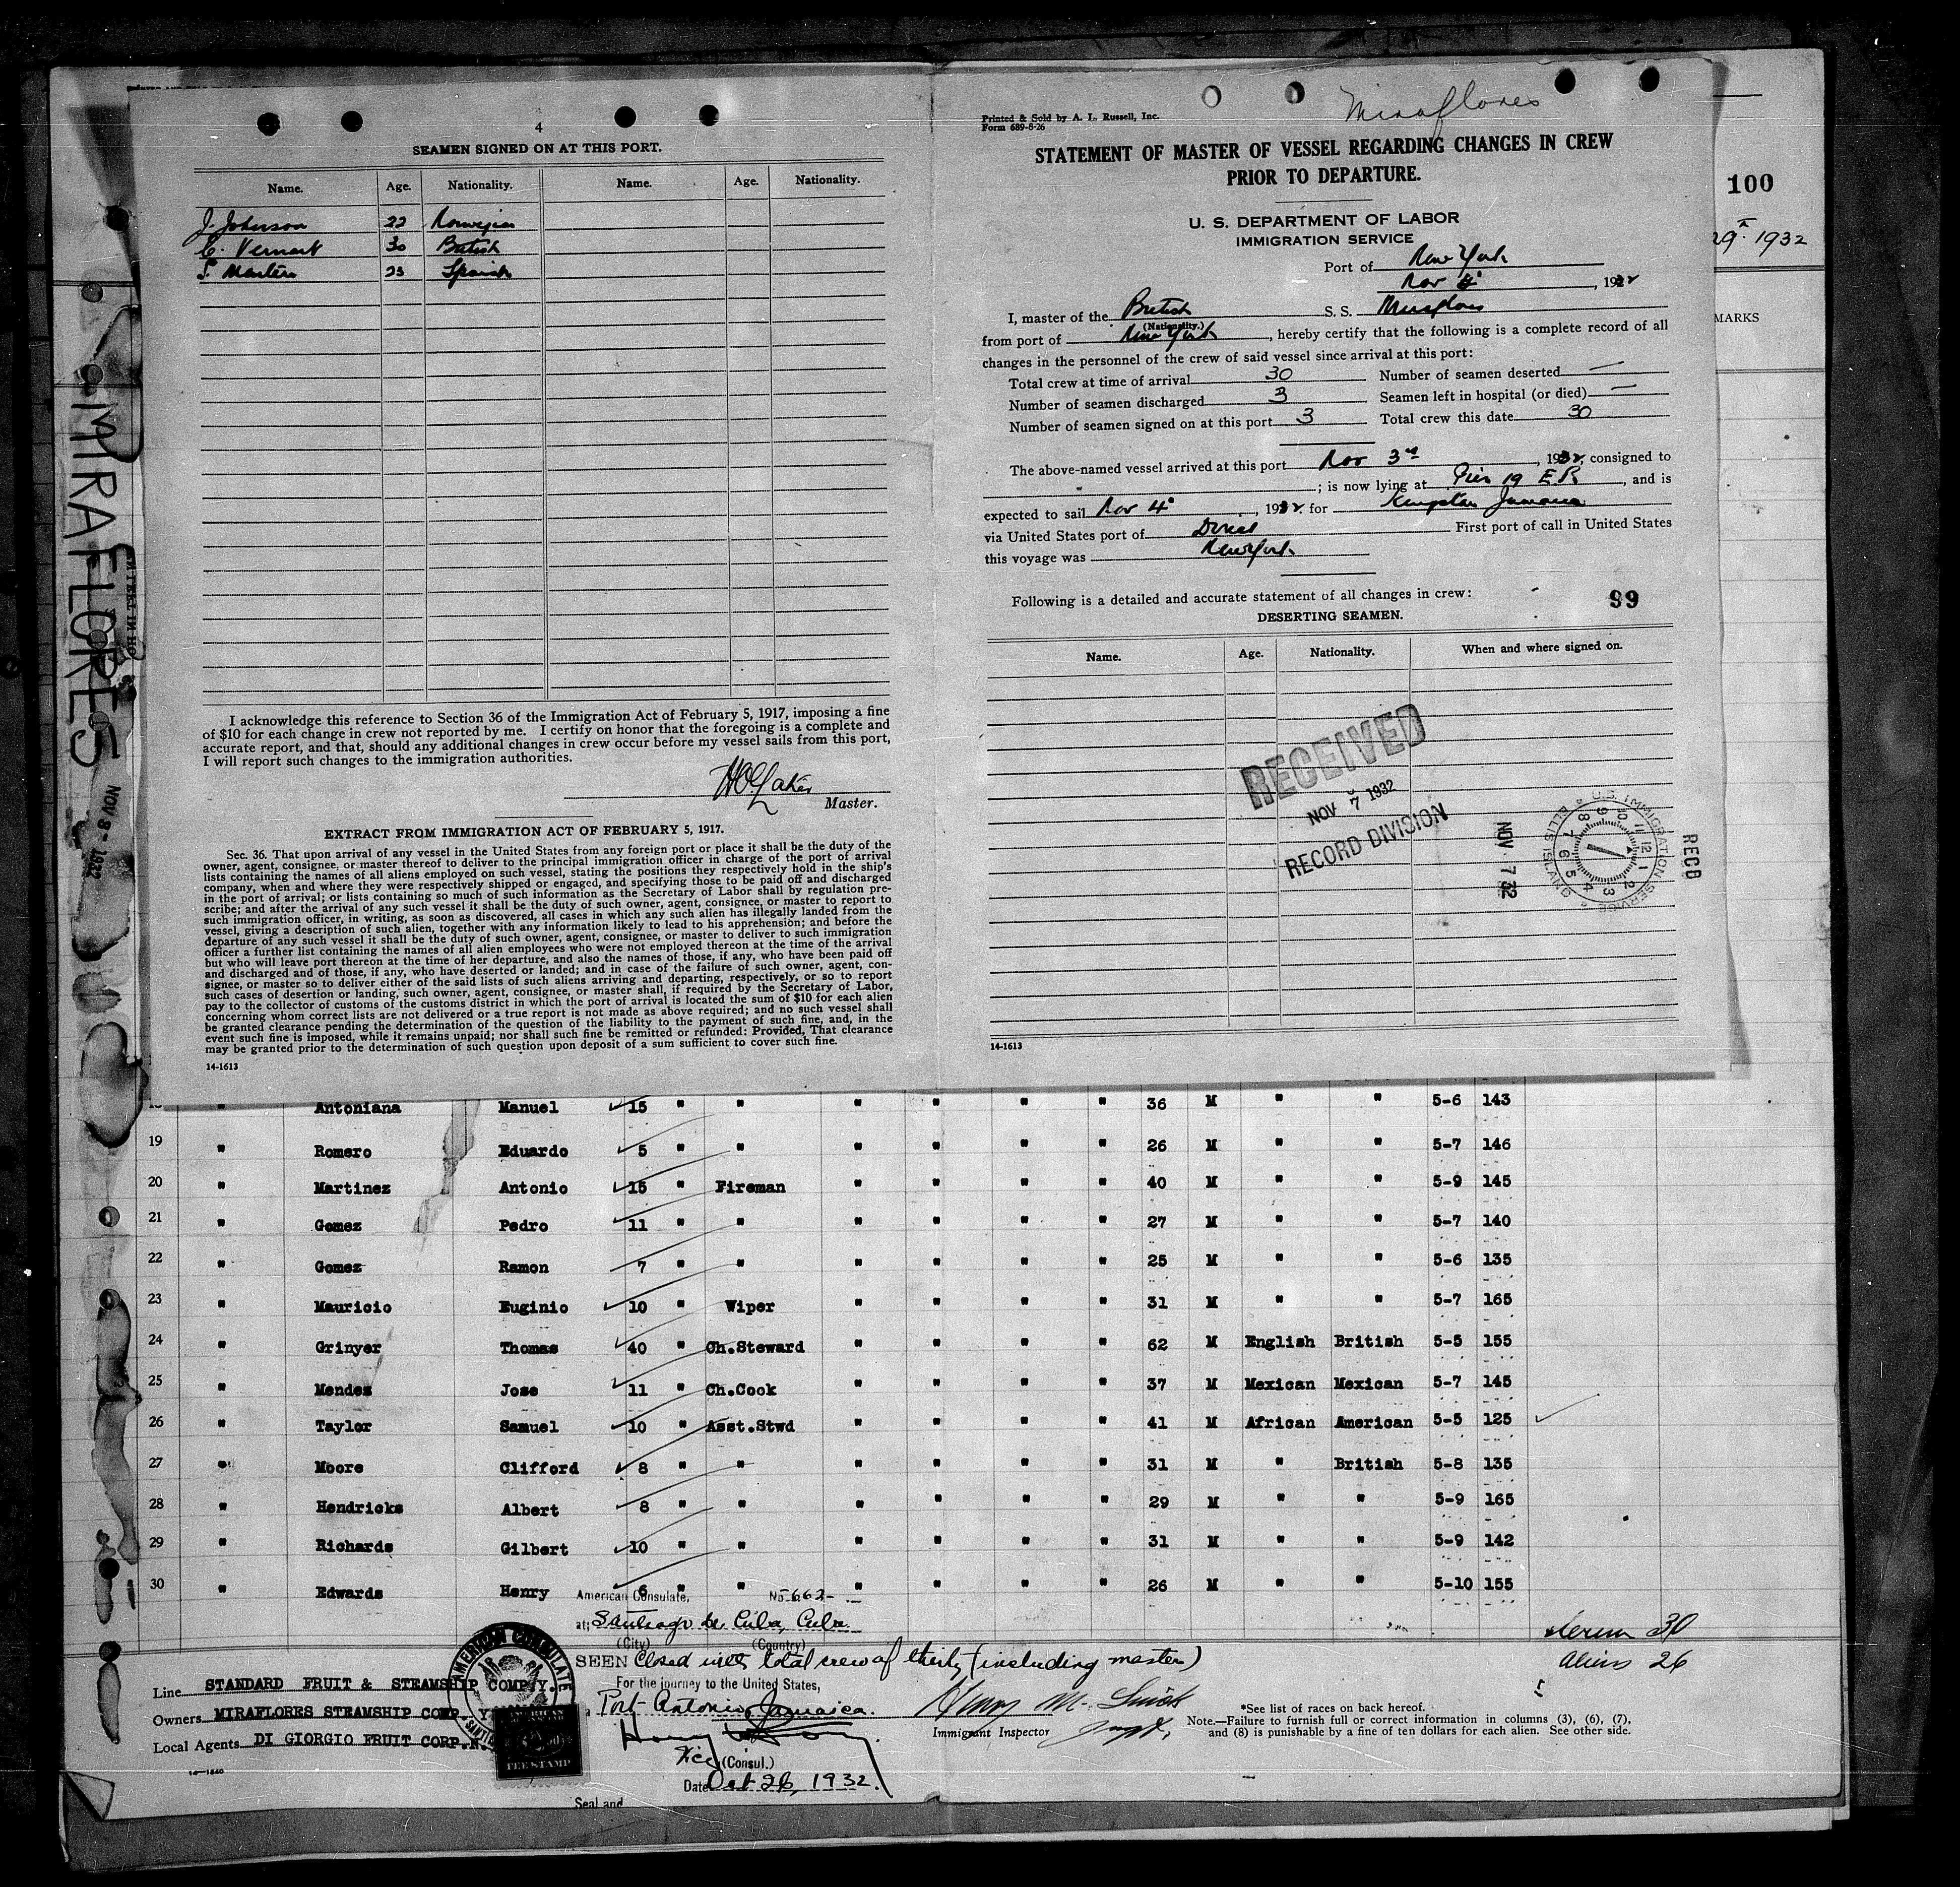 4
SEAMEN SIGNED ON AT THIS PORT.
Name. Age. Nationality. Name. Age. Nationality.
J. Johnson 22 Norwegian
C. Vernart 30 British
S. Martin 23 Spanish
I acknowledge this reference to Section 36 of the Immigration Act of February 5, 1917, imposing a fine
of $10 for each change in crew not reported by me. I certify on honor that the foregoing is a complete and
accurate report, and that, should any additional changes in crew occur before my vessel sails from this port,
I will report such changes to the immigration authorities.
Master.
EXTRACT FROM IMMIGRATION ACT OF FEBRUARY 5, 1917.
Sec. 36. That upon arrival of any vessel in the United States from any foreign port or place it shall be the duty of the
owner, agent, consignee, or master thereof to deliver to the principal immigration officer in charge of the port of arrival
lists containing the names of all aliens employed on such vessel, stating the positions they respectively hold in the ship's
company, when and where they were respectively shipped or engaged, and specifying those to be paid off and discharged
in the port of arrival; or lists containing so much of such information as the Secretary of Labor shall by regulation pre-
scribe; and after the arrival of any such vessel it shall be the duty of such owner, agent, consignee, or master to report to
such immigration officer, in writing, as soon as discovered, all cases in which any such alien has illegally landed from the
vessel, giving a description of such alien, together with any information likely to lead to his apprehension; and before the
departure of any such vessel it shall be the duty of such owner, agent, consignee, or master to deliver to such immigration
officer a further list containing the names of all alien employees who were not employed thereon at the time of the arrival
but who will leave port thereon at the time of her departure, and also the names of those, if any, who have been paid off
and discharged and of those, if any, who have deserted or landed; and in case of the failure of such owner, agent, con-
signee, or master so to deliver either of the said lists of such aliens arriving and departing, respectively, or so to report
such cases of desertion or landing, such owner, agent, consignee, or master shall, if required by the Secretary of Labor,
pay to the collector of customs of the customs district in which the port of arrival is located the sum of $10 for each alien
concerning whom correct lists are not delivered or a true report is not made as above required; and no such vessel shall
be granted clearance pending the determination of the question of the liability to the payment of such fine, and, in the
event such fine is imposed, while it remains unpaid; nor shall such fine be remitted or refunded: Provided, That clearance
may be granted prior to the determination of such question upon deposit of a sum sufficient to cover such fine.
14-1613
Miraflores
Printed & Sold by A. L. Russell, Inc.
Form 689-8-26
STATEMENT OF MASTER OF VESSEL REGARDING CHANGES IN CREW
PRIOR TO DEPARTURE.
U. S. DEPARTMENT OF LABOR
IMMIGRATION SERVICE
Port of New York
Nov 4, 1932
I, master of the British S. S. Miraflores
(Nationality.)
from port of New York, hereby certify that the following is a complete record of all
changes in the personnel of the crew of said vessel since arrival at this port:
Total crew at time of arrival 30 Number of seamen deserted —
Number of seamen discharged 3 Seamen left in hospital (or died) —
Number of seamen signed on at this port 3 Total crew this date 30
The above-named vessel arrived at this port Nov 3rd, 1932, consigned to
; is now lying at Pier 19 E R, and is
expected to sail Nov 4, 1932 for Kingston Jamaica
via United States port of Direct First port of call in United States
this voyage was New York
Following is a detailed and accurate statement of all changes in crew:
99
DESERTING SEAMEN.
Name. Age. Nationality. When and where signed on.
RECEIVED
NOV 7 1932
RECORD DIVISION
REC'D
U.S. IMMIGRATION SERVICE ELLIS ISLAND
NOV 7 32
14-1613
100
29 1932
MARKS
MIRAFLORES
NOV 8- 1932
Antoniana Manuel 15 " " " " " " 36 M " " 5-6 143
19 " Romero Eduardo 5 " " " " " " 26 M " " 5-7 146
20 " Martinez Antonio 15 " Fireman " " " " 40 M " " 5-9 145
21 " Gomez Pedro 11 " " " " " " 27 M " " 5-7 140
22 " Gomez Ramon 7 " " " " " " 25 M " " 5-6 135
23 " Mauricio Euginio 10 " Wiper " " " " 31 M " " 5-7 165
24 " Grinyer Thomas 40 " Ch.Steward " " " " 62 M English British 5-5 155
25 " Mendez Jose 11 " Ch.Cook " " " " 37 M Mexican Mexican 5-7 145
26 " Taylor Samuel 10 " Asst.Stwd " " " " 41 M African American 5-5 125
27 " Moore Clifford 8 " " " " " " 31 M " British 5-8 135
28 " Hendricks Albert 8 " " " " " " 29 M " " 5-9 165
29 " Richards Gilbert 10 " " " " " " 31 M " " 5-9 142
30 " Edwards Henry 6 " " " " " " 26 M " " 5-10 155
American Consulate, No 662-
at Santiago de Cuba, Cuba
(City) (Country)
SEEN Closed with total crew of thirty (including master)
For the journey to the United States,
Port Antonio, Jamaica.
Vice (Consul.)
Date Oct 26, 1932.
Seal and
AMERICAN CONSULATE
FEE STAMP
Line STANDARD FRUIT & STEAMSHIP COMP'Y.
Owners MIRAFLORES STEAMSHIP COMP. Y
Local Agents DI GIORGIO FRUIT CORP.
14-1840
Immigrant Inspector
30
Aliens 26
*See list of races on back hereof.
Note.—Failure to furnish full or correct information in columns (3), (6), (7),
and (8) is punishable by a fine of ten dollars for each alien. See other side.